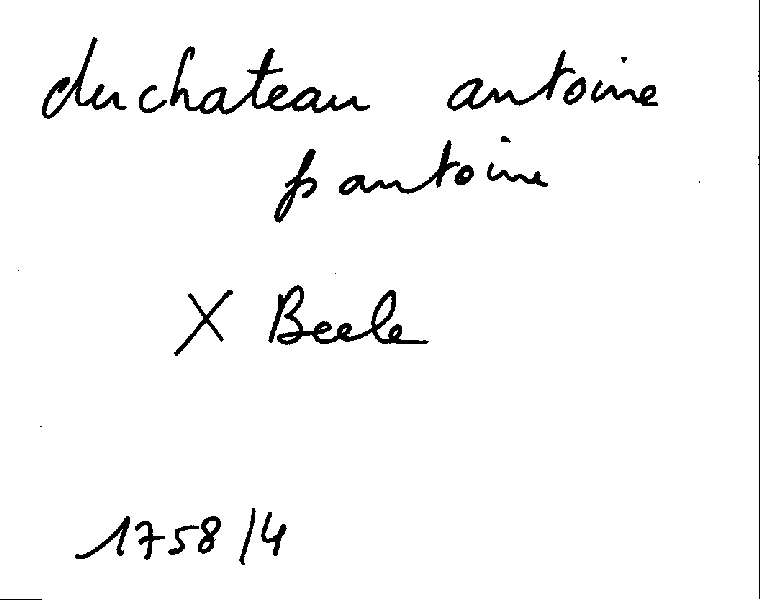 duchateau antoine
fs antoine
X Beele
1758/4